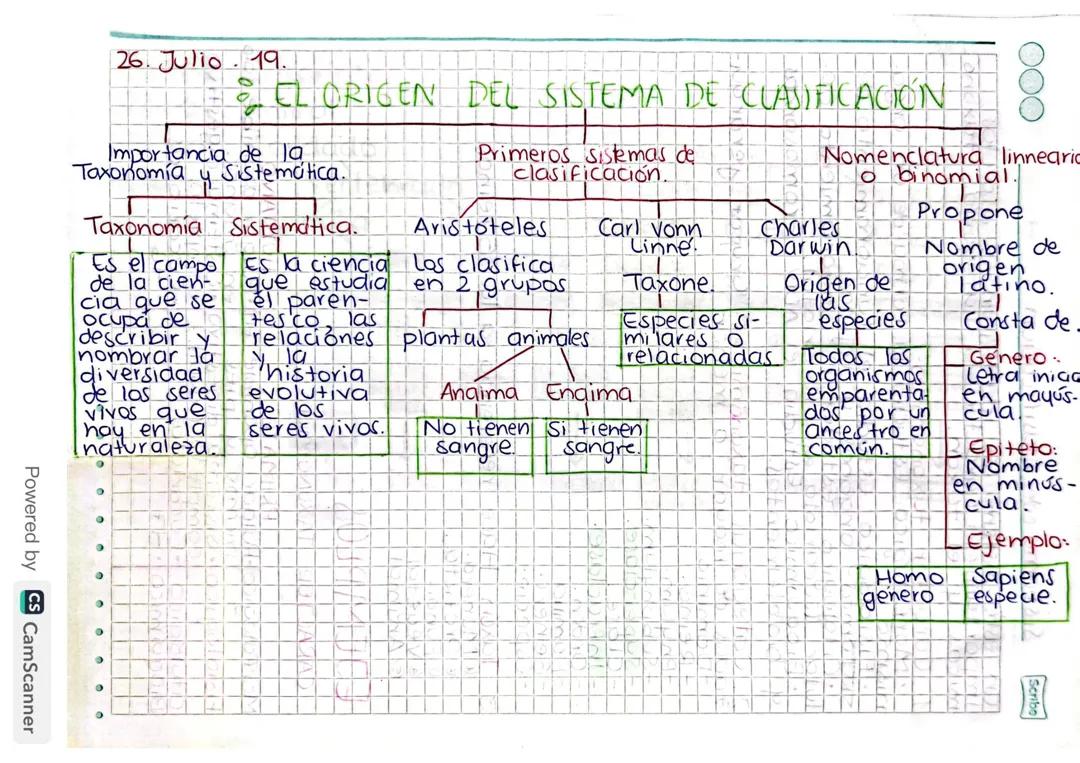 26. Julio. 19.
EL ORIGEN DEL SISTEMA DE CLASIFICACIÓN
Importancia de la
Taxonomía y Sistemática.
Taxonomía
Es el campo
de la cien-
cia que se
ocupa de
describir y
nombrar la
diversidad
de los seres
vivos que
hay en la
naturaleza.
Sistemática.
Es la ciencia
que estudia
el paren-
tesco, las
relaciones
y la
historia
evolutiva
de los
seres vivos.
Primeros sistemas de
clasificación.
Aristóteles
Los clasifica
en 2 grupos
plantas animales
Anaima
No tienen
sangre.
Enaima
Si tienen
sangre.
Carl Vonn
Linne.
Taxone.
Especies si-
milares o
relacionadas
Charles
Darwin.
Origen de
las
especies
Todos los
organismos
emparenta-
dos por un
ancestro en
común.
Nomenclatura linnearia
o binomial.
Propone
Nombre de
origen
latino.
Consta de.
Género:
Letra inicia
en mayús-
cula.
Epiteto:
Nombre
en minús-
cula.
Ejemplo:
Homo
género
Sapiens
especie.
Scribe
Powered by CS CamScanner